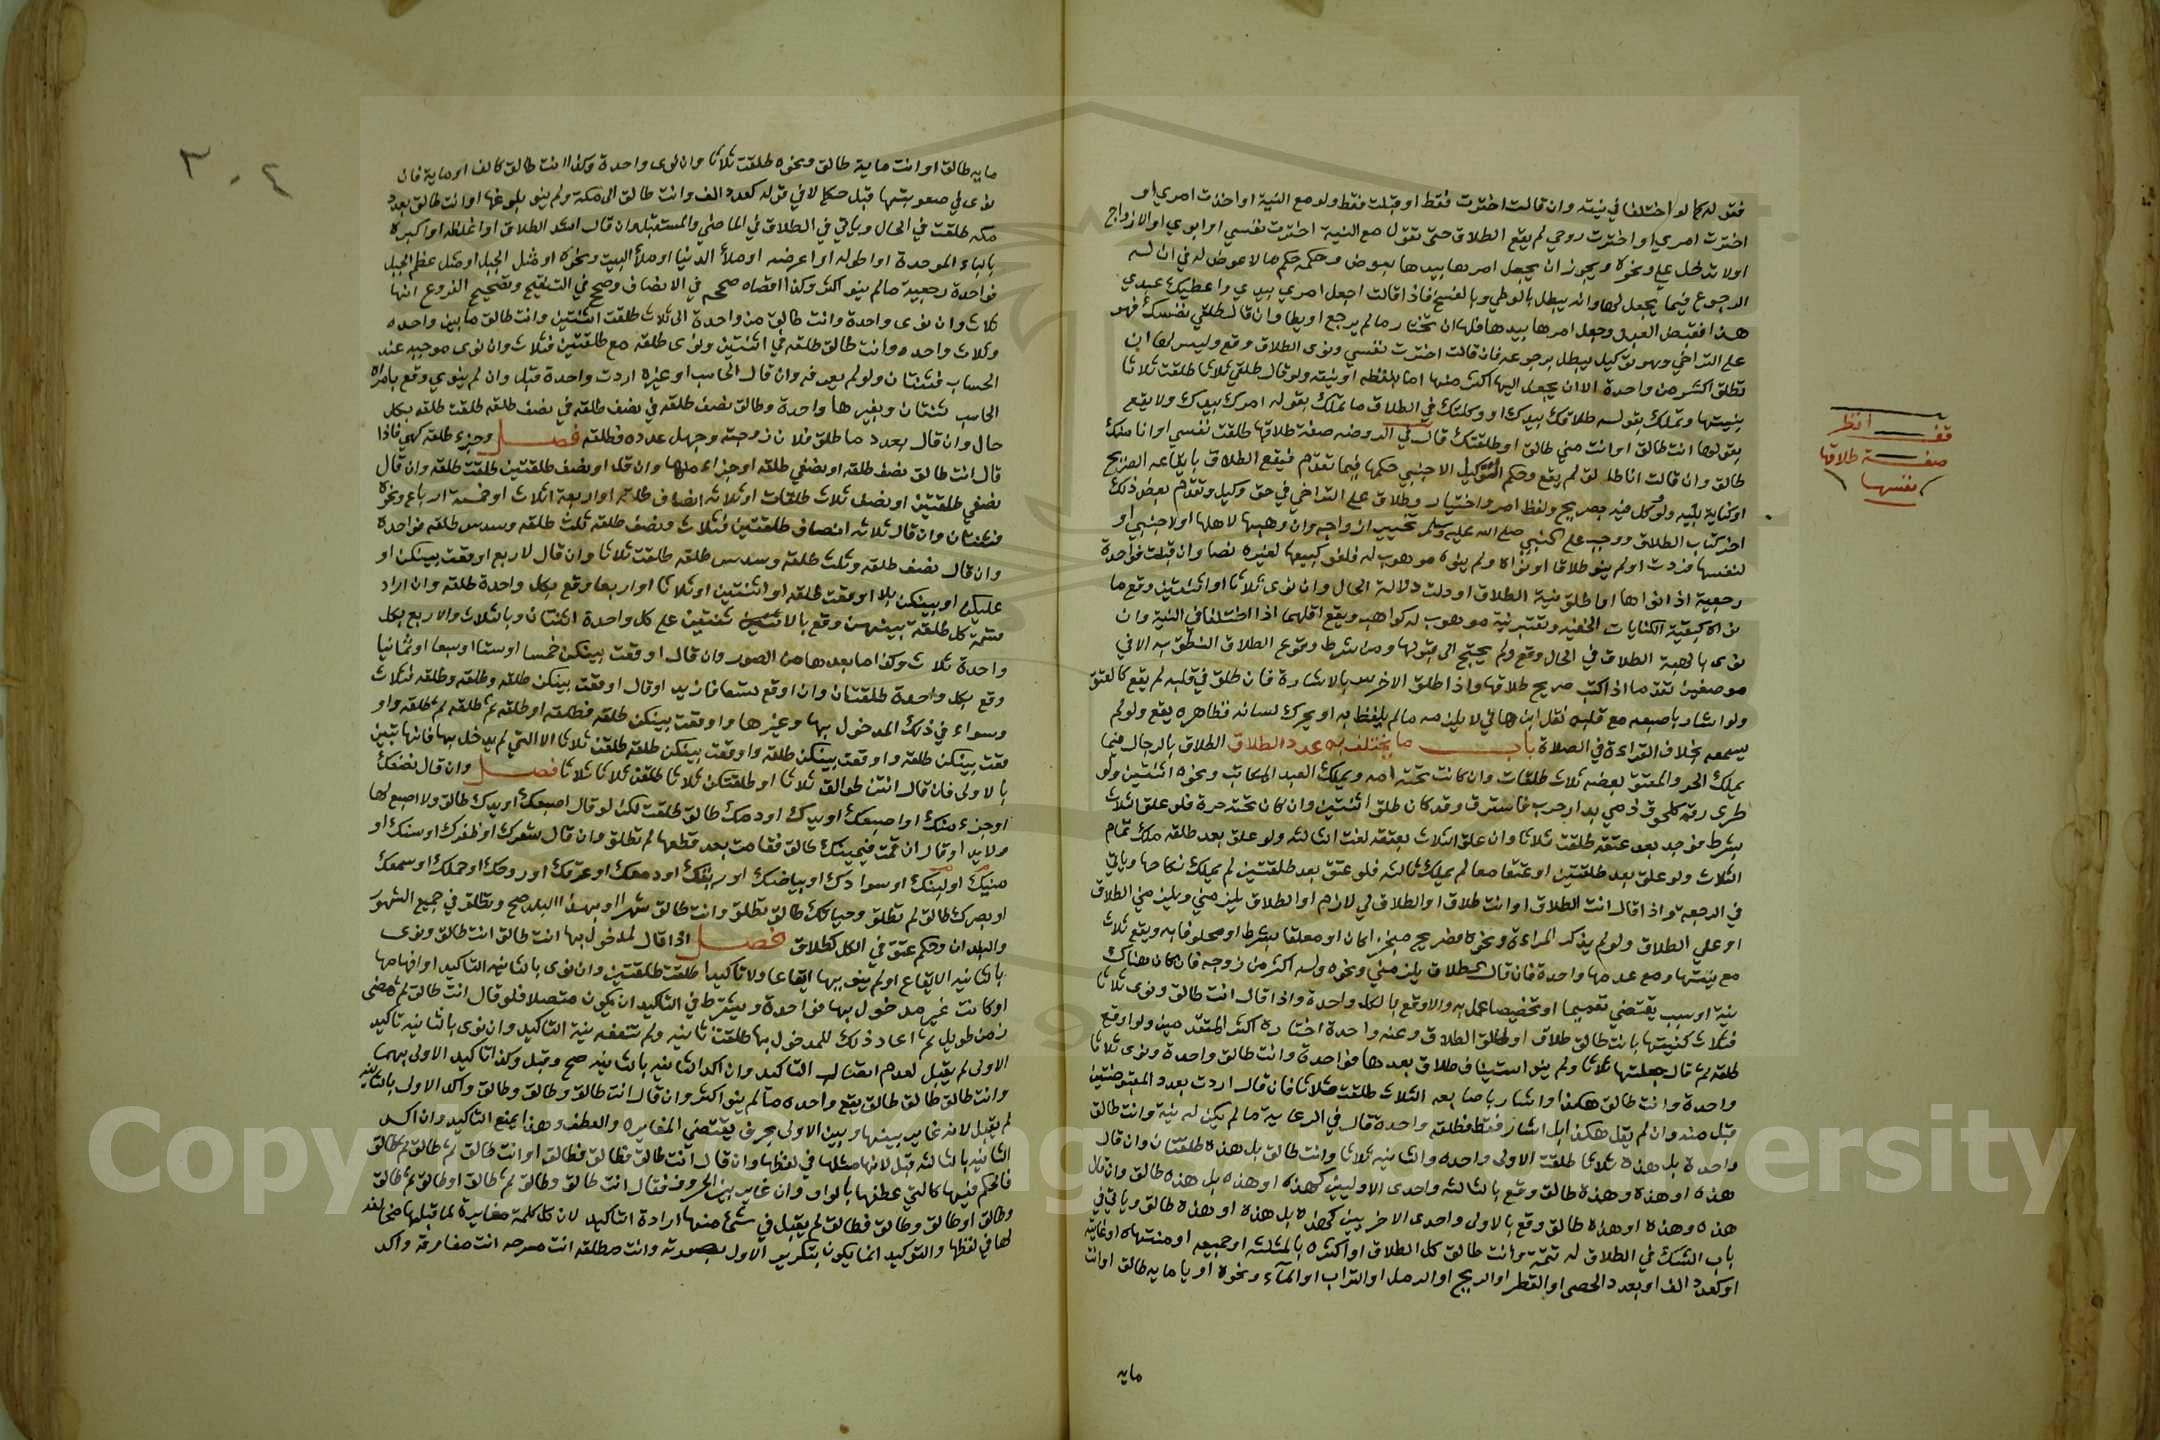 فقوله كما لو اختلفا في نيته وان قالت اخترت فقط او قبلت فقط ولو مع النية او اخذت امري او
اخترت امري او اخترت زوجي لم يقع الطلاق حتى تقول مع النية اخترت نفسي او ابوي او الازواج
او لا تدخل علي ونحوه ويجوز ان يجعل امرها بيدها بعوض وحكمه حكم ما لا عوض له في ان له
الرجوع فيما يجعل لها وانه يبطل بالوطي وبالفسخ فاذا قالت اجعل امري بيدي واعطيك عبدي
هذا فقبض العبد وجعل امرها بيدها فلها ان تختار ما لم يرجع او يطا وان قال طلقي نفسك فهو
على التراخي وهو توكيل يبطل برجوعه فان قالت اخترت نفسي ونوى الطلاق وقع وليس لها ان
تطلق اكثر من واحدة الا ان يجعل اليها اكثر منها اما بلفظه او نيته ولو قال طلقي ثلاثا طلقت ثلاثا
بنيتها وتملك بقوله طلاقك بيدك او وكلتك في الطلاق ما تملك بقوله امرك بيدك ولا يقع
بقولها انت طالق او انت مني طالق او طلقتك قال في الروضه صفة طلاقها طلقت نفسي او انا منك
طالق وان قالت انا طالق لم يقع وحكم التوكيل الاجنبي حكمها فيما تقدم فيقع الطلاق بايقاعه الصريح
او كناية بنيه ولو وكل فيه بصريح ولفظ امر واختيار وطلاق على التراخي في حق وكيل وتقدم بعض ذلك
اخر كتاب الطلاق ووجب على النبي صلى الله عليه وسلم تخيير ازواجه وان وهبها لاهلها او لاجنبي او
لنفسها فردت او لم ينو طلاقا او نواه ولم ينوه موهوب له فلغو كبيعها لغيره نصا وان قبلت فواحدة
رجعية اذا نواها او اطلق نية الطلاق او دلت دلالة الحال وان نوى ثلاثا او اثنتين وقع ما
نواه كبقية الكنايات الخفيه وتعتبر نية موهوب له كواهب ويقع اقلهما اذا اختلفا في النية وان
نوى بالهبة الطلاق في الحال وقع ولم يحتج الى قبولها ومن شرط وقوع الطلاق النطق به الا في
موضعين تقدما اذا كتب صريح طلاقها واذا طلق الاخرس بالاشارة فان طلق في قلبه لم يقع كالعتق
ولو اشار باصبعه مع قلبه نقل ابن هاني لا يلزمه ما لم يلفظ به او يحرك لسانه فظاهره يقع ولو لم
يسمعه بخلاف القراءة في الصلاة باب ما يختلف به عدد الطلاق الطلاق بالرجال فيما
يملك الحر والمعتق بعضه ثلاث طلقات وان كانت تحته امه ويملك العبد المكاتب ونحوه اثنتين ولو
طرى رقه كلحوق ذمي بدار حرب فاسترق وقد كان طلق اثنتين وان كان تحته حرة فلو علق الثلاث
بشرط فوجد بعد عتقه طلقت ثلاثا وان علق الثلاث بعتقه لغت الثالثه ولو علق بعد طلقه ملك تمام
الثلاث ولو علق بعد طلقتين او عتقا معا لم يملك ثالثه فلو عتق بعد طلقتين لم يملك نكاحها وياتي
في الرجعة واذا قال انت الطلاق او انت طلاق او الطلاق لي لازم او الطلاق يلزمني ويلزمني الطلاق
او علي الطلاق ولو لم يذكر المراءة ونحوه فصريح منجزا كان او معلقا بشرط او محلوفا به ويقع ثلاث
مع نيتها ومع عدمها واحدة فان قال الطلاق يلزمني ونحوه وله اكثر من زوجه فان كان هناك
نية او سبب يقتضي تعميما او تخصيصا عمل به والا وقع بالكل واحدة واذا قال انت طالق ونوى ثلاثا
فثلاث كنيتها بانت طالق طلاق او طالق الطلاق وعنه واحدة اختاره اكثر المتقدمين ولو اوقع
طلقة ثم قال جعلتها ثلاثا ولم ينو استئناف طلاق بعدها فواحدة وانت طالق واحدة ونوى ثلاثا
واحدة وانت طالق هكذا واشار باصابعه الثلاث طلقت ثلاثا فان قال اردت بعدد المقبوضتين
قبل منه وان لم يقل هكذا بل اشار فقط فطلقه واحدة قال في الرعاية ما لم يكن له نية وانت طالق
واحدة بل هذه ثلاثا طلقت الاولى واحده والثانيه ثلاثا وانت طالق بل هذه طلقتان وان قال
هذه او هذه وهذه طالق وقع بالثالثه واحدى الاوليين كهذه او هذه بل هذه طالق وان قال
هذه وهذه او هذه طالق وقع بالاولى واحدى الاخريين كهذه بل هذه او هذه طالق وياتي في
باب الشك في الطلاق له تتمة وانت طالق كل الطلاق او اكثره بالمثلثه او جميعه او منتهاه او غايته
او كعدد الف او بعدد الحصى او القطر او الريح او الرمل او التراب او الماء ونحوه او يا مايه طالق او انت
مايه
قف انظر
صفة طلاقها
نفسها
٣٠٤
مايه طالق او انت ماية طالق ونحوه طلقت ثلاثا وان نوى واحدة وكذا انت طالق كالف او ماية فان
نوى في صعوبتها قبل حكما لا في قوله كعدد الف وانت طالق الى مكة ولم ينو بلوغها او انت طالق بعد
مكه طلقت في الحال وياتي في الطلاق في الماضي والمستقبل وان قال اشد الطلاق او اغلظه او اكبره
بالباء الموحدة او اطوله او اعرضه او ملأ الدنيا او ملأ البيت ونحوه او مثل الجبل او مثل عظم الجبل
فواحدة رجعية ما لم ينو اكثر وكذا اقصاه صححه في الانصاف وصح في التنقيح وتصحيح الفروع انها
ثلاث وان نوى واحدة وانت طالق من واحدة الى ثلاث طلقت اثنتين وانت طالق ما بين واحده
وثلاث واحده وانت طالق طلقه في اثنتين ونوى طلقه مع طلقتين فثلاث وان نوى موجبه عند
الحساب فثنتان ولو لم يعرفه وان قال الحاسب او غيره اردت واحدة قبل وان لم ينوي وقع بامراه
الحاسب ثنتان وبغيرها واحدة وطالق نصف طلقه في نصف طلقه في نصف طلقه طلقت طلقه بكل
حال وان قال بعدد ما طلق فلان زوجته وجهل عدده فطلقه فصل وجزء طلقه كهي فاذا
قال انت طالق نصف طلقه او نصفي طلقه او جزاء منها وان قل او نصف طلقتين طلقت طلقه وان قال
نصفي طلقتين او نصف ثلاث طلقات او ثلاثة انصاف طلقه او اربعة اثلاث او خمسة ارباع ونحوه
فثنتان وان قال ثلاثه انصاف طلقتين فثلاث ونصف طلقه ثلث طلقه وسدس طلقه فواحدة
وان قال نصف طلقه وثلث طلقه وسدس طلقه طلقت ثلاثا وان قال لاربع اوقعت بينكن او
عليكن او بينكن بلا اوقعت طلقه او اثنتين او ثلاثا او اربعا وقع بكل واحدة طلقه وان اراد
قسمة كل طلقة بينهن وقع بالاثنتين ثنتين على كل واحدة اثنتان وبالثلاث والاربع بكل
واحدة ثلاث وكذا ما بعدها من الصور وان قال اوقعت بينكن خمسا او ستا او سبعا او ثمانيا
وقع بكل واحدة طلقتان وان اوقع تسعا فازيد او قال اوقعت بينكن طلقه وطلقه وطلقه فثلاث
وسواء في ذلك المدخول بها وغيرها واوقعت بينكن طلقه فطلقه او طلقه ثم طلقه ثم طلقه واو
قعت بينكن طلقه واوقعت بينكن طلقه واوقعت بينكن طلقه طلقن ثلاثا الا التي لم يدخل بها فانها تبين
بالاولى فان قال انتن طوالق ثلاثا او طلقتكن ثلاثا طلقن ثلاثا ثلاثا فصل وان قال نصفك
او جزء منك او اصبعك او يدك او دمك طالق طلقت لكن لو قال اصبعك او يدك طالق ولا اصبع لها
ولا يد او قال ان قمت فيمينك طالق فقامت بعد قطعها لم تطلق وان قال شعرك او ظفرك او سنك او
منيك او لبنك او سوادك او بياضك او ريقك او دمعك او عرقك او روحك او حملك او سمعك
او بصرك طالق لم تطلق وحياتك طالق تطلق وانت طالق شهرا او بهذا البلد صح وتطلق في جميع الشهور
والبلدان وحكم عتق في الكل كطلاق فصل اذا قال لمدخول بها انت طالق انت طالق ونوى
بالثانيه الايقاع او لم ينو بها ايقاعا ولا تاكيدا طلقت طلقتين وان نوى بالثانيه التاكيد او افهامها
او كانت غير مدخول بها فواحدة ويشترط في التاكيد ان يكون متصلا فلو قال انت طالق ثم مضى
زمن طويل ثم اعاد ذلك للمدخول بها طلقت ثانيه ولم تنفعه نية التاكيد وان نوى بالثانيه تاكيد
الاولى لم يقبل لعدم اتصال التاكيد وان اكد الثانيه بالثانيه صح وقبل وكذا تاكيد الاولى بهما
وانت طالق طالق طالق يقع واحده ما لم ينو اكثر وان قال انت طالق وطالق وطالق واكد الاولى بالثانيه
لم يقبل لانه غاير بينها وبين الاولى بحرف يقتضي المغايره والعطف وهذا يمنع التاكيد وان اكد
الثانيه بالثالثه قبل لانها مثلها في لفظها وان قال انت طالق فطالق فطالق او انت طالق ثم طالق ثم طالق
فالحكم فيها كالتي عطفها بالواو وان غاير بين الحروف فقال انت طالق وطالق ثم طالق او طالق ثم طالق
وطالق او طالق وطالق فطالق لم يقبل في شيء منها ارادة التاكيد لان كل كلمة مغايرة لما قبلها مخالفه
لها في لفظها والتوكيد انما يكون بتكرير الاول بصورته وانت مطلقه انت مسرحه انت مفارقة واكد